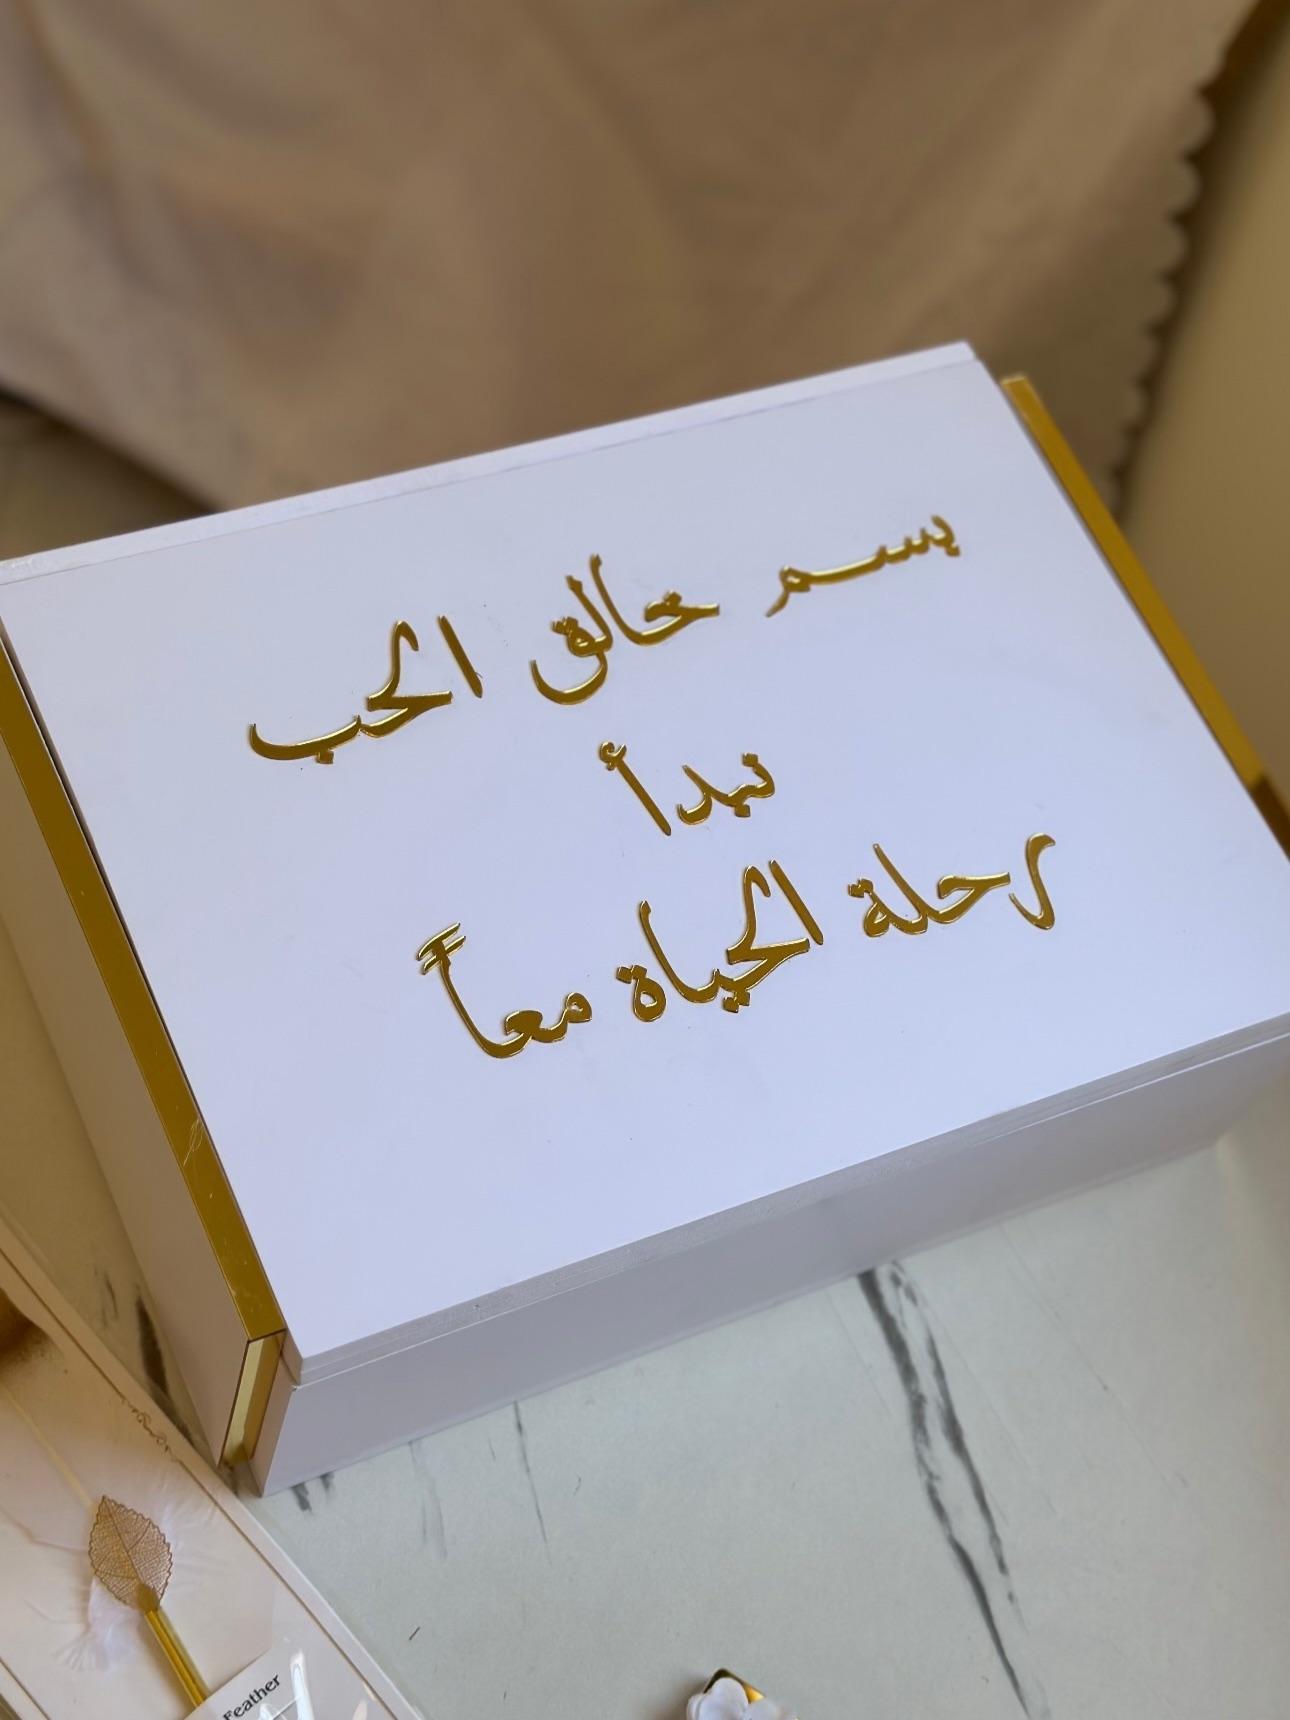 بسم خالق الحب
نبدأ
رحلة الحياة معاً
Feather